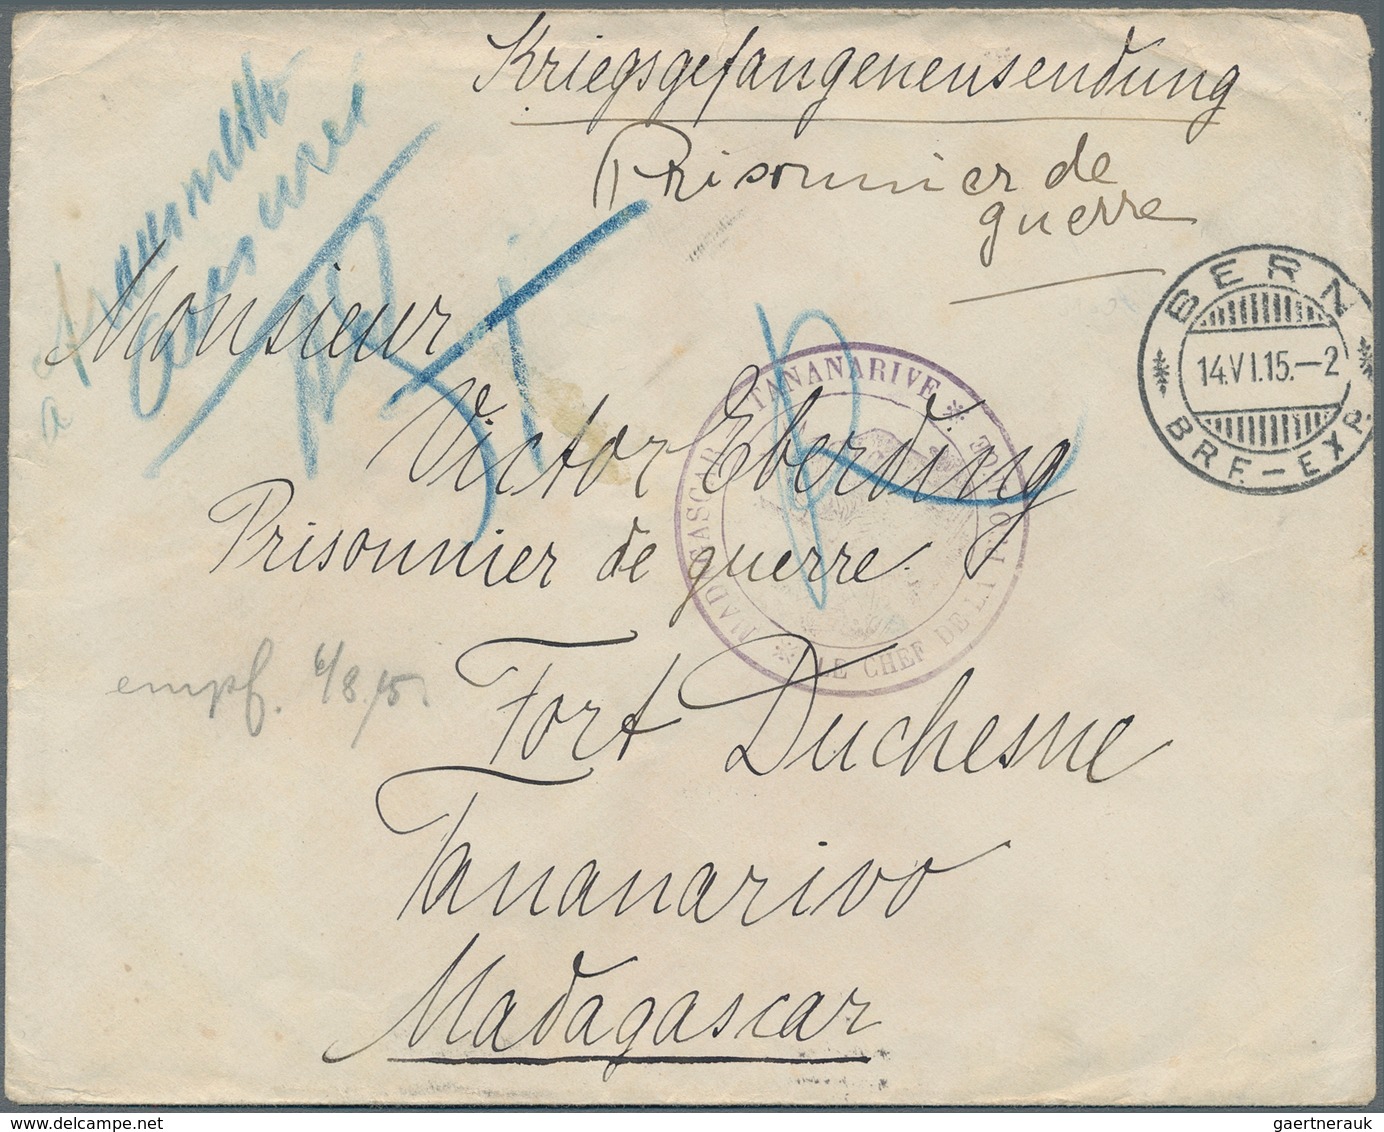 Kriegsgefangenensendung
Prisonnier de
guerre
BERN
14.VI.15.–2
BRF.–EXP.
Monsieur
Victor Eberding
Prisonnier de guerre.
TANANARIVE
MADAGASCAR
LE CHEF DE LA POLICE
empf. 6/8.15.
Fort Duchesne
Tananarivo
Madagascar
delcampe.net
gaertnerauk